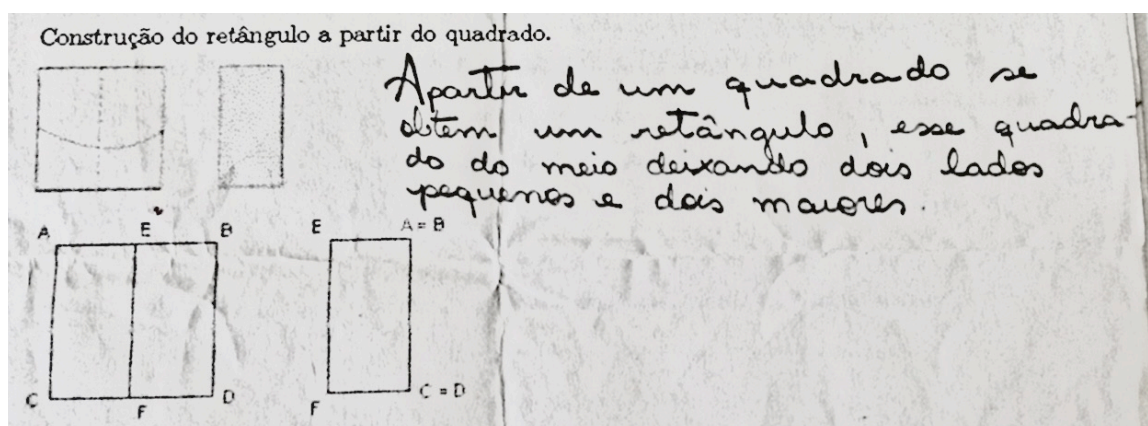 Construção do retângulo a partir do quadrado.
Apartir de um quadrado se
obtem um retângulo, esse quadra-
do do meio deixando dois lados
pequenos e dois maiores.
A E B
E A = B
C F D
F C = D